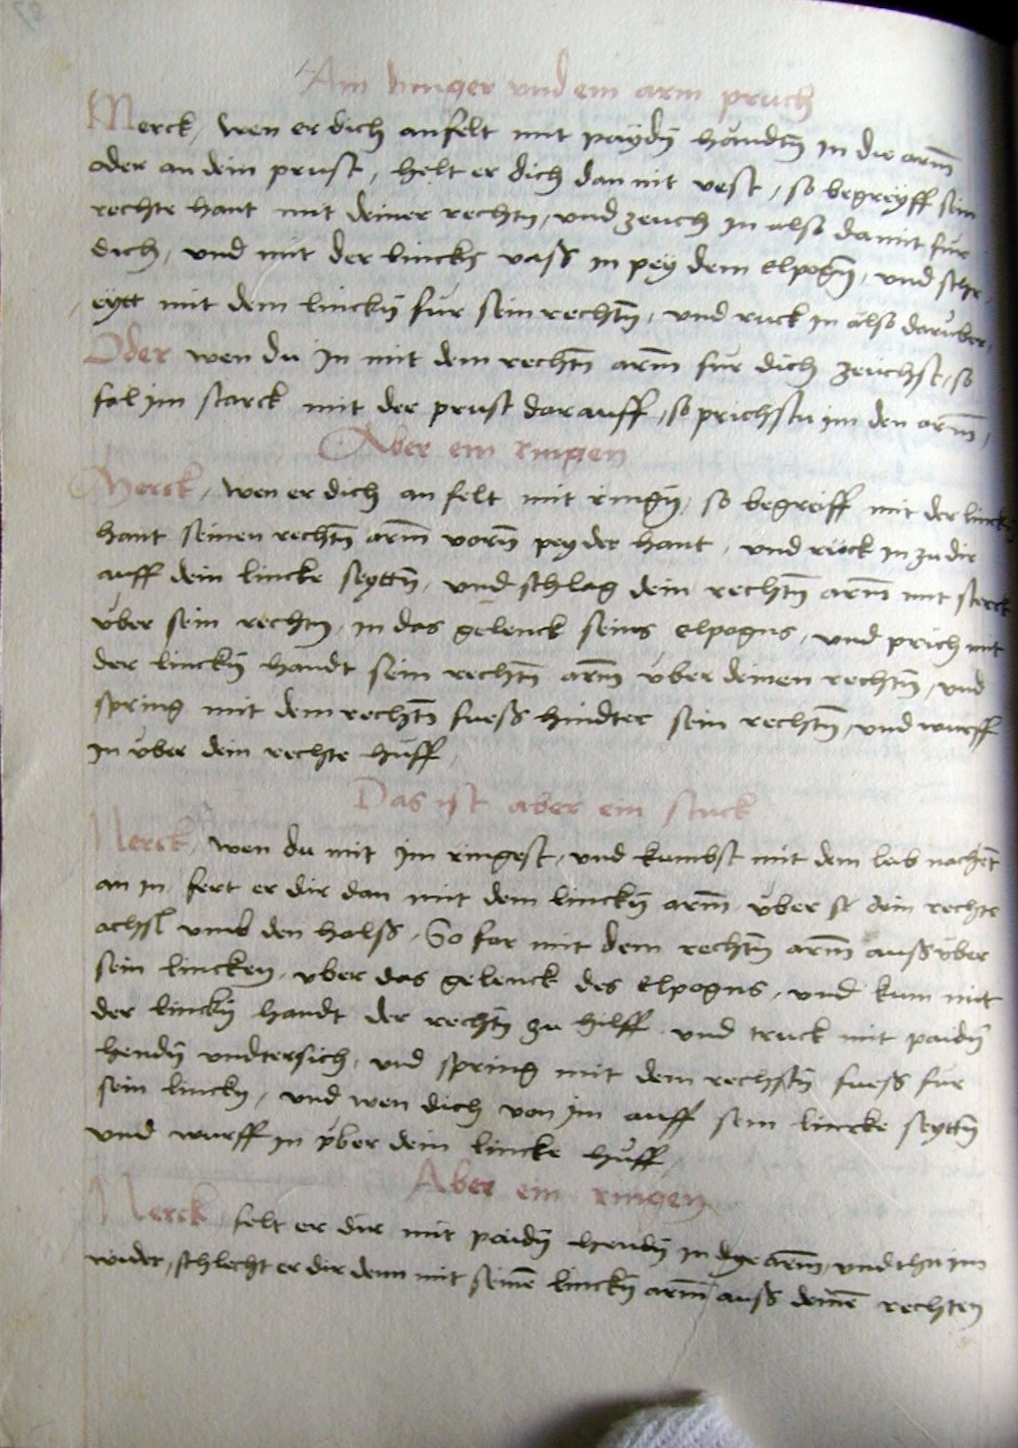 Ain ringer und ein arm pruch
Merck, wen er dich anfelt mit paÿdn̄ handn̄ in die arm̄
oder an dein prust, helt er dich dan nit vest, so begreÿff sein
rechte hant mit deiner rechtn, und zeuch in also damit fur
dich, und mit der linckn vass in peÿ dem elpogn̄, und schr
eÿtt mit dem linckn̄ fur sein rechtn̄, und ruck in also daruber,
Oder wen du in mit dem rechtn̄ arm̄ fur dich zeuchst, so
fal im starck mit der prust darauff, so prichstu im den arm̄,
Aber ein ringen
Merck, wen er dich an felt mit ringn̄, so begreiff mit der lincken
hant seinen rechtn̄ arm̄ vorn̄ peÿ der hant, und rück in zu dir
auff dein lincke seÿttn̄, und schlag dein rechtn̄ arm̄ mit sterck
über sein rechtn, in das gelenck seins elpogns, und prich mit
der linckn̄ handt sein rechtn̄ arm̄ über deinen rechtn̄, und
spring mit dem rechtn̄ fuess hindter sein rechtn̄, und wurff
in über dein rechte huff,
Das ist aber ein stuck
Merck, wen du mit im ringest, und kumbst mit dem leib nachet
an in, fert er dir dan mit dem linckn̄ arm̄ über dein rechte
achsl umb den halss, So far mit dem rechtn̄ arm̄ auss über
sein lincken, uber das gelenck des elpogns, und kum mit
der linckn̄ handt der rechtn̄ zu hilff und truck mit paidn̄
hendn̄ undtersich, und spring mit dem rechtn̄ fuess fur
sein linckn, und wen dich von im auff sein lincke seÿttn̄
und wurff in über dein lincke huff,
Aber ein ringen
Merck, felt er dir mit paidn̄ hendn̄ in dÿe arm̄, und thu im
wider, schlecht er dir denn mit seinē linckn̄ arm̄ auss deinē rechten